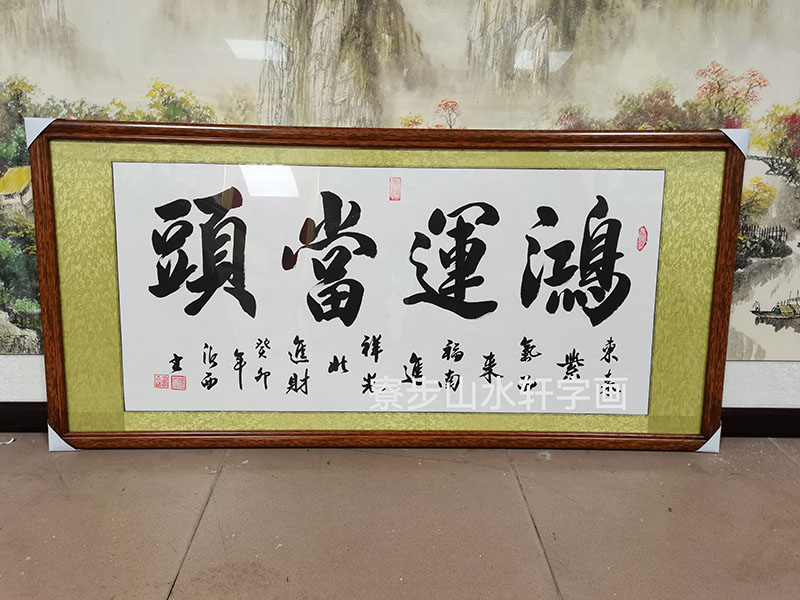 鴻運當頭
東來
紫
氣西
来
福南
進
祥光
北
進財
癸卯
年
寮步山水轩字画